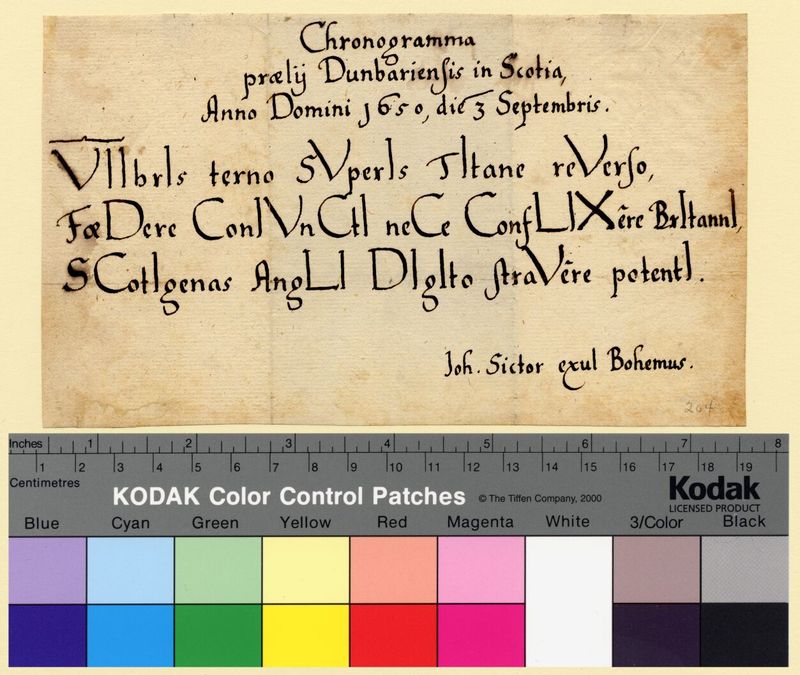 Chronogramma
prælij Dunbariensis in Scotia,
Anno Domini 1650, die 3 Septembris.
VIIbrIs terno SVperIs TItane reVerso,
FæDere ConIVnCtI neCe ConfLIXêre BrItannI,
SCotIgenas AngLI DIgIto straVêre potentI.
Joh. Sictor exul Bohemus.
204
Inches 1 2 3 4 5 6 7 8
1 2 3 4 5 6 7 8 9 10 11 12 13 14 15 16 17 18 19
Centimetres
KODAK Color Control Patches © The Tiffen Company, 2000 Kodak
LICENSED PRODUCT
Blue Cyan Green Yellow Red Magenta White 3/Color Black